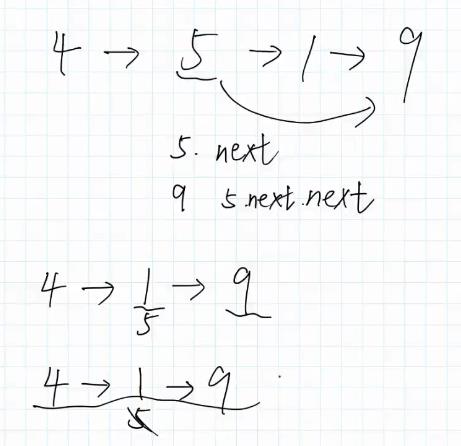 4 → 5 → 1 → 9
5. next
9 5.next.next
4 → 1 → 9
5
4 → 1 → 9
5